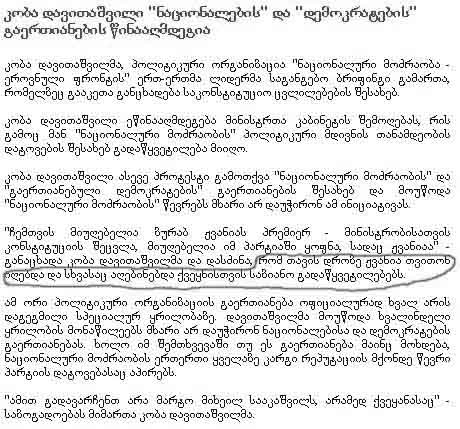 კობა დავითაშვილი "ნაციონალების" და "დემოკრატების"
გაერთიანების წინააღმდეგია
კობა დავითაშვილმა, პოლიტიკური ორგანიზაცია "ნაციონალური მოძრაობა -
ეროვნული ფრონტის" ერთ-ერთმა ლიდერმა საგანგებო ბრიფინგი გამართა,
რომელზეც გააკეთა განცხადება საკონსტიტუციო ცვლილებების შესახებ.
კობა დავითაშვილი ეწინააღმდეგება მინისტრთა კაბინეტის შემოღებას, რის
გამოც მან "ნაციონალური მოძრაობის" პოლიტიკური მდივნის თანამდეობის
დატოვების შესახებ გადაწყვეტილება მიიღო.
კობა დავითაშვილი ასევე პროტესტი გამოთქვა "ნაციონალური მოძრაობის" და
"გაერთიანებული დემოკრატების" გაერთიანების შესახებ და მოუწოდა
"ნაციონალური მოძრაობის" წევრებს მხარი არ დაუჭირონ ამ ინიციატივას.
"ჩემთვის მიუღებელია ზურაბ ჟვანიას პრემიერ - მინისტრობისათვის
კონსტიტუციის შეცვლა, მიუღებელია იმ პარტიაში ყოფნა, სადაც ჟვანიაა" -
განაცხადა კობა დავითაშვილმა და დასძინა, რომ თავის დროზე ჟვანია თვითონ
იღებდა და სხვასაც აღებინებდა ქვეყნისთვის საზიანო გადაწყვეტილებებს.
ამ ორი პოლიტიკური ორგანიზაციის გაერთიანება ოფიციალურად ხვალ არის
დაგეგმილი სპეციალურ ყრილობაზე. დავითაშვილმა მოუწოდა ხვალინდელი
ყრილობის მონაწილეებს მხარი არ დაუჭირონ ნაციონალებისა და დემოკრატების
გაერთიანებას. ხოლო იმ შემთხვევაში თუ ეს გაერთიანება მაინც მოხდება,
ნაციონალური მოძრაობის ერთერთი ყველაზე კარგი რეპუტაციის მქონდე წევრი
პარტიის დატოვებასაც აპირებს.
"ამით გადავარჩენთ არა მარტო მიხეილ სააკაშვილს, არამედ ქვეყანასაც" -
საზოგადოებას მიმართა კობა დავითაშვილმა.